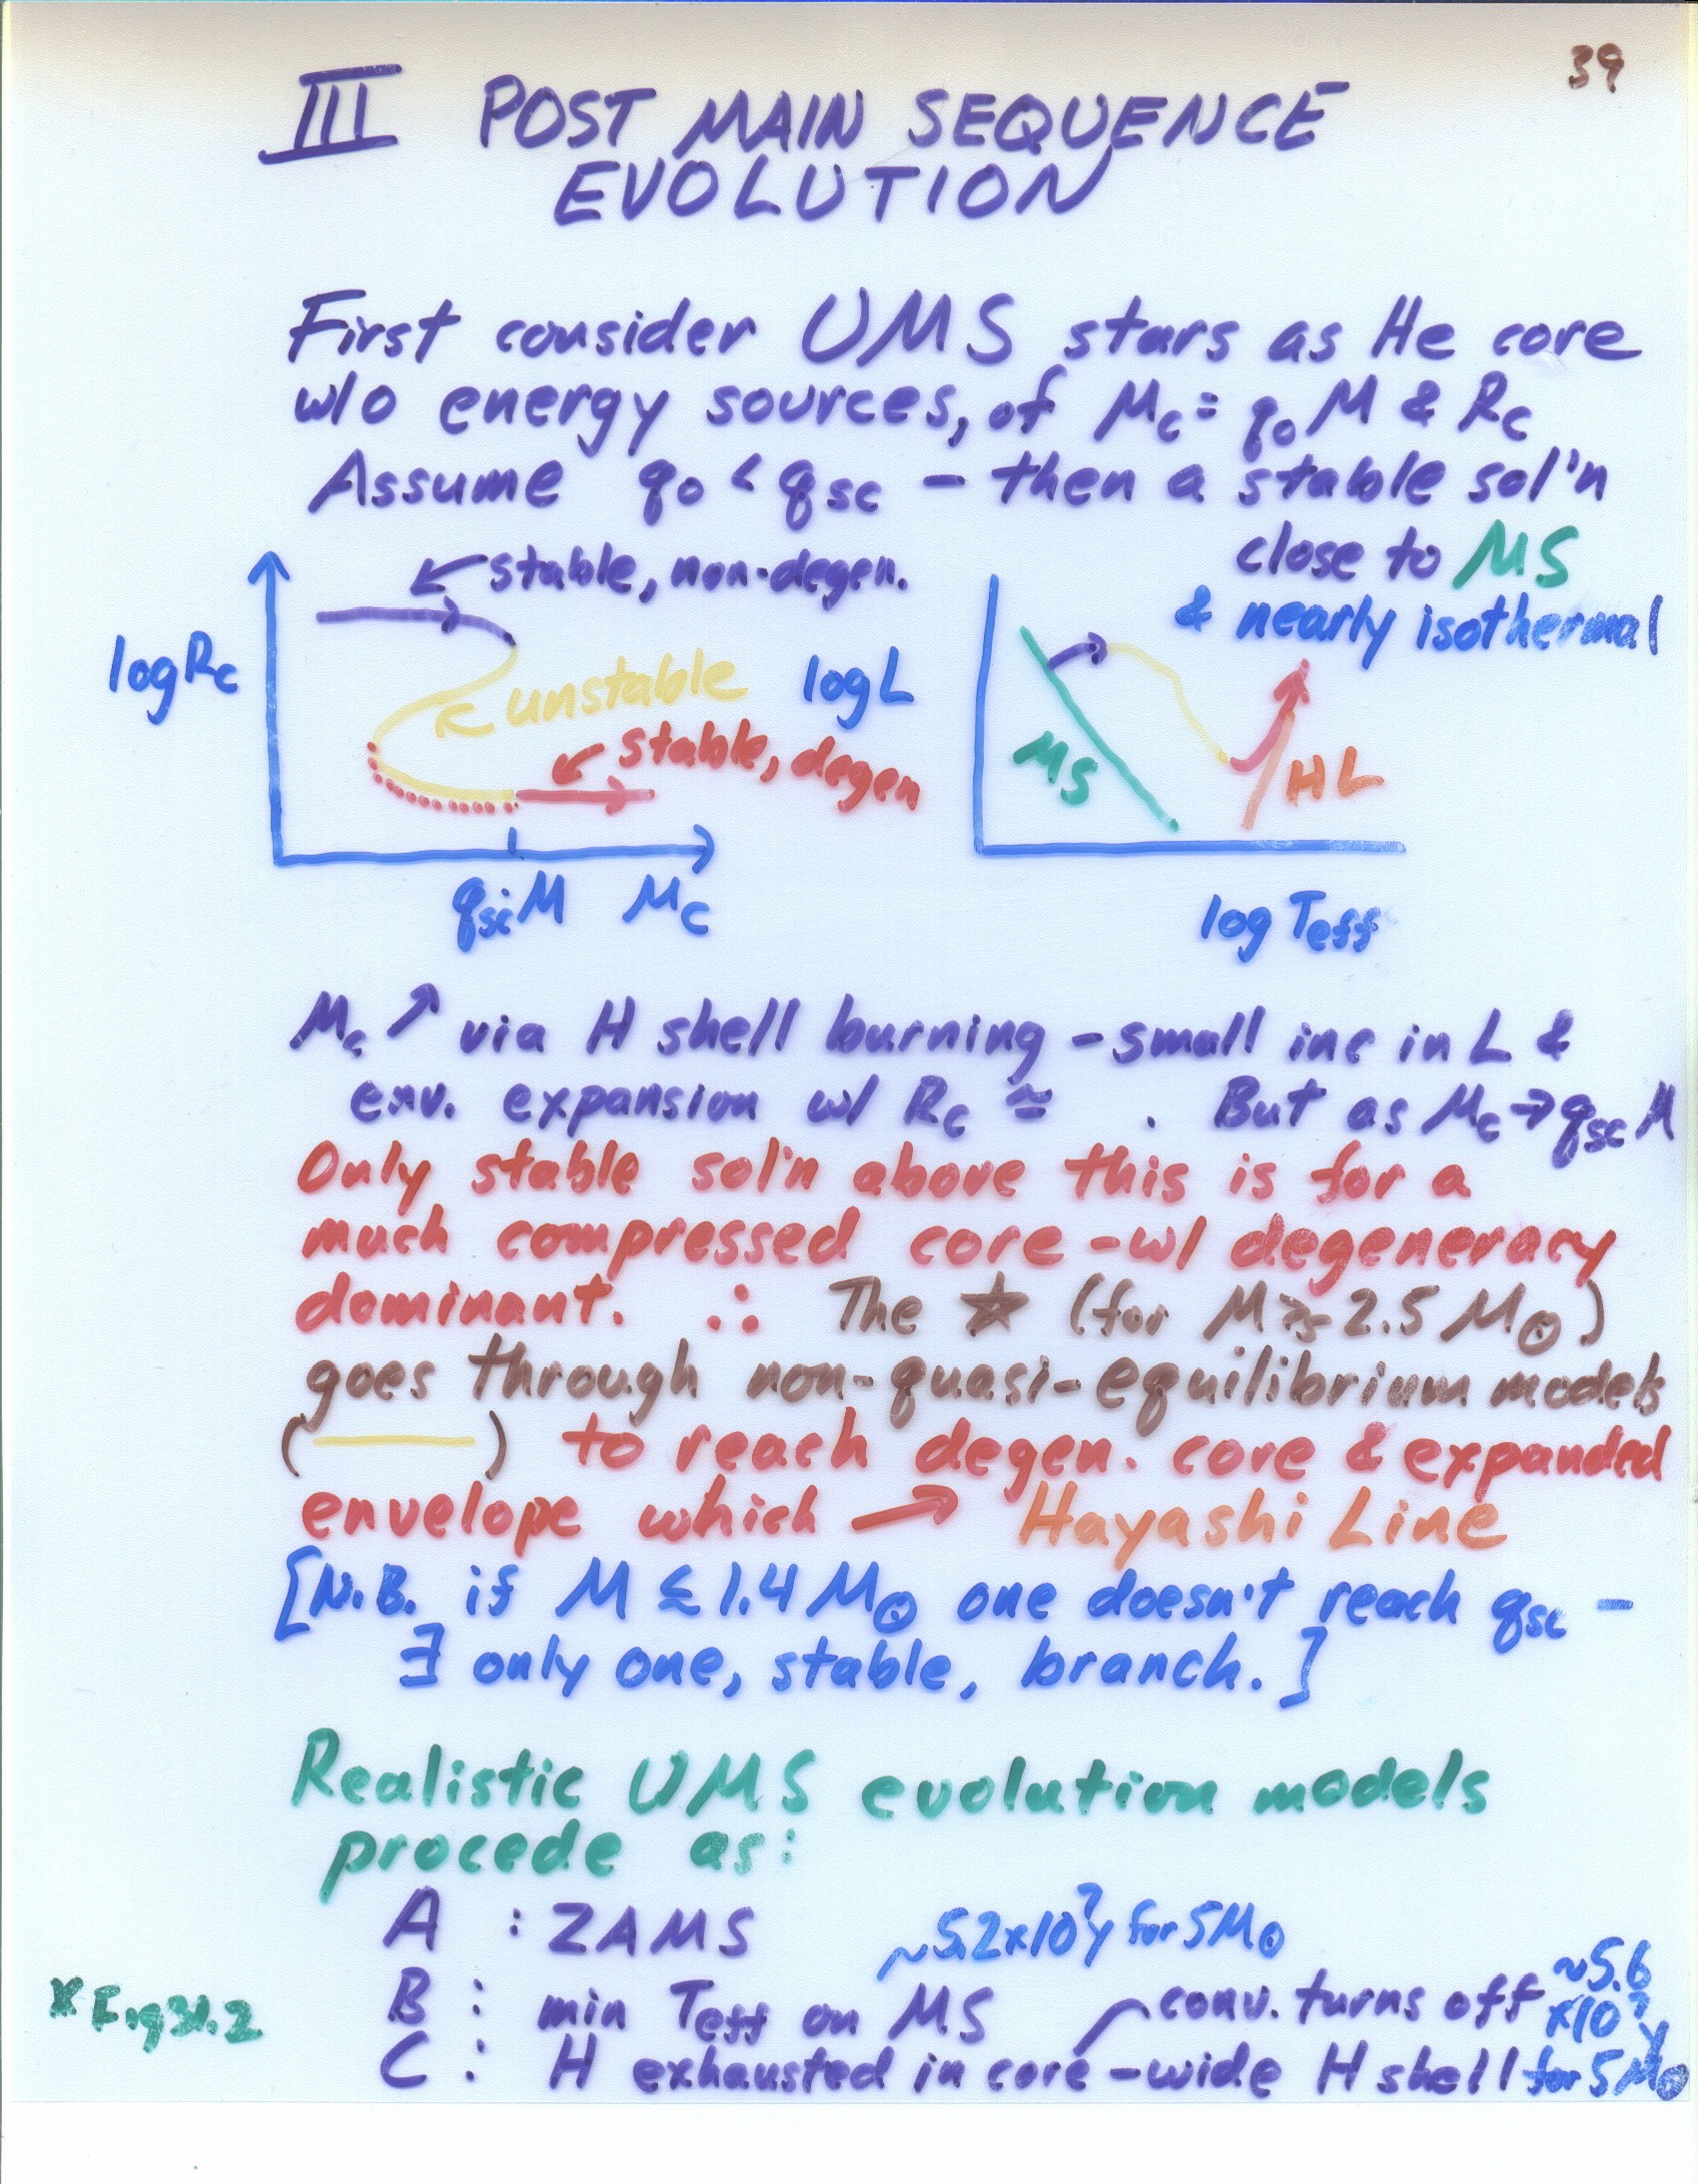 39
III POST MAIN SEQUENCE
EVOLUTION
First consider UMS stars as He core
w/o energy sources, of Mc = q₀ M & Rc
Assume q₀ < qsc – then a stable sol'n
close to MS
& nearly isothermal
stable, non-degen.
log Rc
unstable
stable, degen
qsc M Mc
log L
MS
HL
log Teff
Mc ↗ via H shell burning – small inc in L &
env. expansion w/ Rc ≅ . But as Mc → qsc M
Only stable sol'n above this is for a
much compressed core – w/ degeneracy
dominant. ∴ The ☆ (for M ≳ 2.5 M⊙)
goes through non-quasi-equilibrium models
( — ) to reach degen. core & expanded
envelope which → Hayashi Line
[N.B. if M ≤ 1.4 M⊙ one doesn't reach qsc –
∃ only one, stable, branch.]
Realistic UMS evolution models
procede as:
A : ZAMS
~5.2x10⁷y for 5M⊙
B : min Teff on MS
conv. turns off
~5.6
x10⁷ y
for 5M⊙
* Fig 31.2
C : H exhausted in core – wide H shell